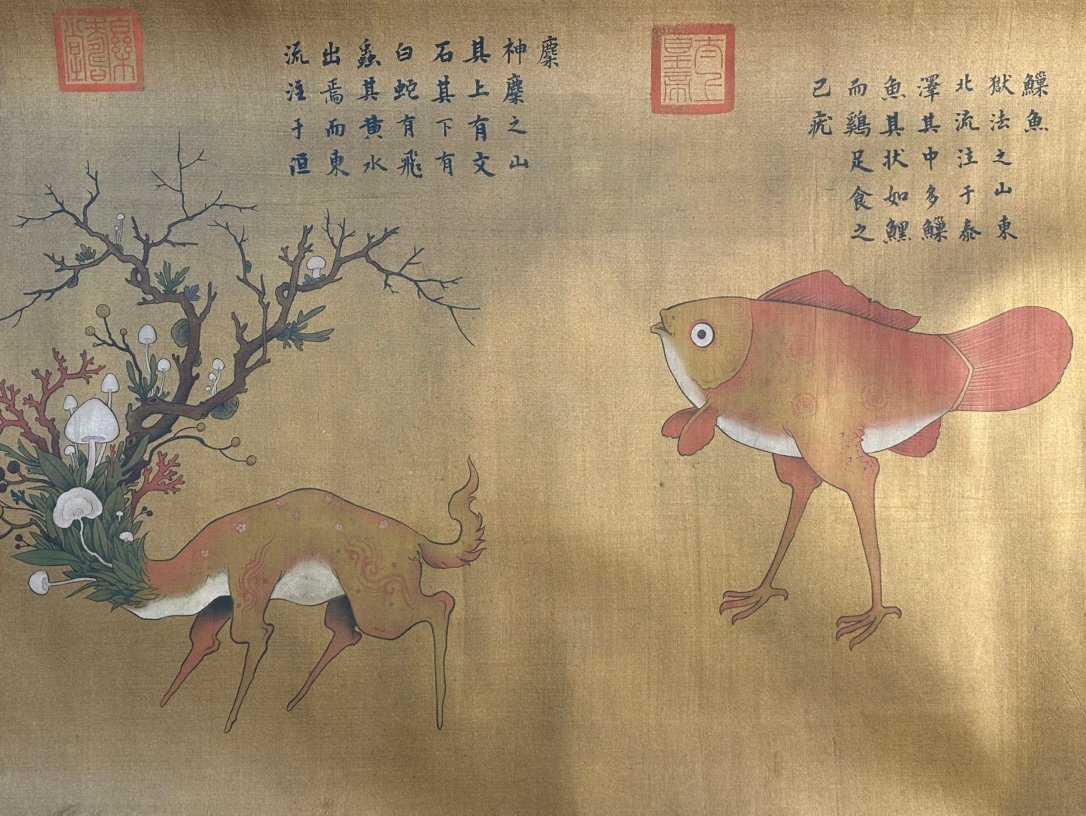 䲃魚
獄法之山東
北流注于泰
澤其中多䲃
魚其状如鯉
而鷄足食之
已疣
太上
皇帝
麇
神麇之山
其上有文
石其下有
白蛇有飛
蟲其黄水
出焉而東
流注于洹